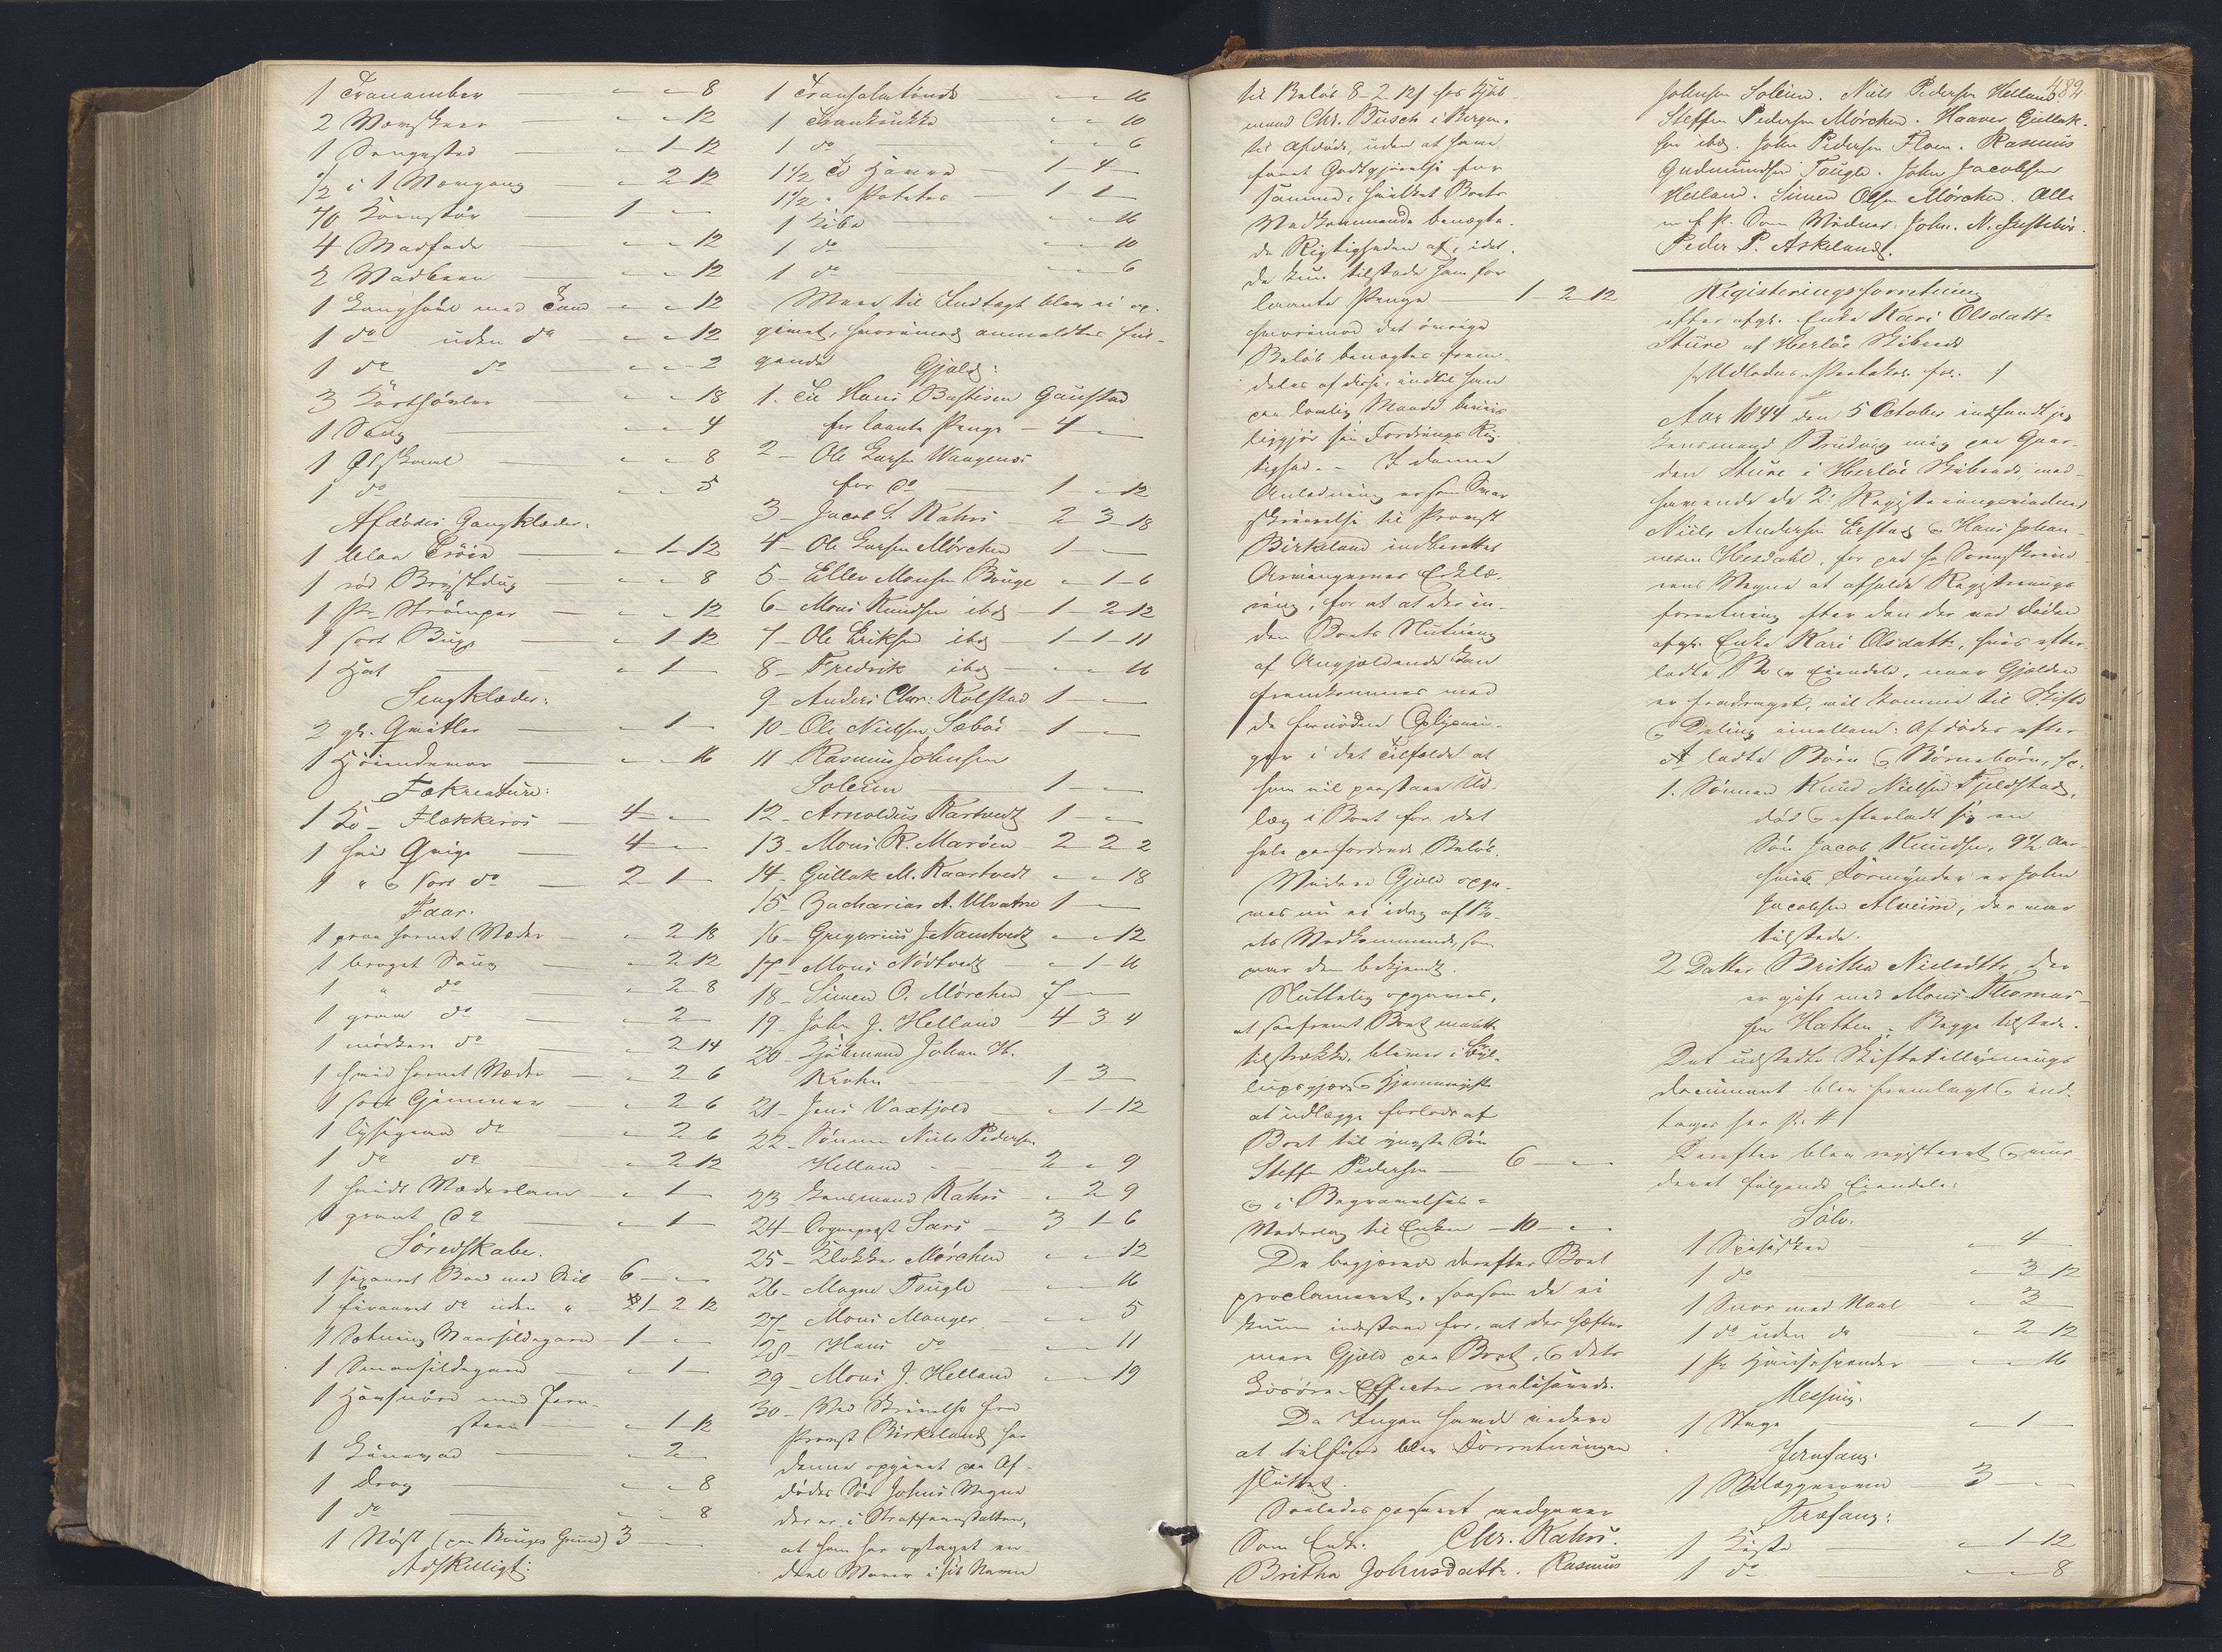 1 Tranamber — " " 8
2 — " " 12
1 Sengested — " 1 12
1/2 i 1 — " 2 12
40 Kornstør — 1 " "
4 Madfade — " " 12
2 — " " 12
1 Langhøvl med Tand " " 12
1 do uden do — " " 12
1 do do — " " 2
3 Korthøvler — " " 18
1 Saug — " " 4
1 Ølskaal — " " 8
1 do — " " 5
Afdødes Gangklæder:
1 blaa Trøie — " 1 12
1 rød Brystdug — " " 8
1 Pr Strømper — " " 12
1 sort Buxe — " 1 12
1 Hat — " 1 "
Sengklæder:
2 gl. — " 1 "
1 — " " 16
Fækreature:
1 Ko Flekkeros — 4 " "
1 hvid Qvige — 4 " "
1 " & sort do — 2 1 "
Faar.
1 graa hornet Væder — " 2 18
1 broget Saug — " 2 12
1 " do — " 2 8
1 graa do — " 2 "
1 mørkere do — " 2 14
1 hvid hornet Væder — " 2 6
1 sort Gimmer — " 2 6
1 lysegraa do — " 2 6
1 do do — " 2 12
1 hvidt Væderlam — " 1 "
1 graat do — " 1 "
Søredskabe.
1 Baad med Seil 6 " "
1 firaaret do uden " 1 2 12
1 Vaarsildegarn — 1 " "
1 Smaasildegarn — " 1 "
1 med Jern-
steen — " 1 12
1 — " 2 "
1 Drag — " " 8
1 do — " " 8
1 Nøst (paa Bouges Grund) 3 " "
Adskilligt:
1 — " " 16
1 Trankrukke " " 10
1 do " " 6
1 1/2 Td Havre — 1 4 "
1 1/2 " Potetes — 1 1 "
1 Kibe — " " 16
1 do " " 10
1 do " " 6
Mere til Indtægt blev ei op-
givet, hvorimod anmeldtes føl-
gende Gjæld:
1. Til Hans Gaustad
for laante Penge — 4 "
2 — Ole Larsen Waagenes
for do — 1 " 12
3 — Jacob S. Kahrs — 2 3 18
4 — Ole Larsen Mørchen 1 " "
5 — Ellev Monsen Bouge " 1 6
6 — Mons Knudsen ibd — 1 2 12
7 — Ole Eriksen ibd — 1 1 11
8 — Fredrik ibd — " " 16
9 — Anders Chr: Kolstad 1 " "
10 — Ole Nielsen Sæbøe 1 " "
11 — Rasmus Johnsen
Soleim — 1 " "
12 — Arnoldus Kartvedt 1 " "
13 — Mons R. Marøen — 2 2 2
14 — Gullak M. Kaartvedt " " 18
15 — Zacharias A. Ulvatne 1 " "
16 — Gregorius J. Namtvedt " " 12
17 — Mons Nødtvedt — " 1 16
18 — Simen O. Mørchen 7 " "
19 — John J. Helland — 4 3 4
20 — Kjøbmand Johan H.
Krohn — 1 3 "
21 — Jens Vaxtjold — " 1 12
22 — Sønnen Niels Pedersen
Helland — 2 " 9
23 — Lensmand Kahrs — " 2 9
24 — Sogneprest Sars — 3 1 6
25 — Klokker Mørchen — " " 12
26 — Magne Tougle — " " 16
27 — Mons Manger — " " 5
28 — Hans do — " " 11
29 — Mons J. Helland — " " 19
30 — Ved Skrivelse fra
Provst Birkeland har
denne opgivet paa Af-
dødes Søn Johns Vegne
der er i Straffeanstalten,
at have optaget en
deel Varer i sit Navn
til Beløb 8-2-12 hos Kjøb-
mand Chr. Busch i Bergen
til Afdøde, uden at have
faaet Godtgjørelse for
samme, hvilket Boets
Vedkommende benægte-
de Rigtigheden af, idet
de kun tilstode ham for
laante Penge — 1 2 12
hvorimod det øvrige
Beløb benægtes frem-
deles af disse, indtil han
paa lovlig Maade beviis-
liggjør sin Fordrings Rig-
tighed. — I denne
Anledning er som Svar
skrivelse til Provst
Birkeland indberettet
Arvingernes Erklæ-
ring, for at at der in-
den Boets Slutning
af Angjældende kan
fremkommes med
de fornødne Oplysnin-
ger i det Tilfælde at
han vil paastaae Ud-
læg i Boet for det
hele paafordrede Beløb.
Videre Gjæld opga-
ves nu ei idag af Bo-
ets Vedkommende, som
var dem bekjendt.
Sluttelig opgaves,
at saafremt Boet maatte
tilstrække, bliver i Bryl-
lupsgjør & Hjemmegifte
at udlægge forlods af
Boet til yngste Søn
Steffen Pedersen — 6 " "
& i Begravelses-
Vederlag til Enken — 10 " "
De begjærede derefter Boet
proclameret, saasom de ei
kunne indestaae for, at der hæfter
mere Gjæld paa Boet, & dets
Løsøre-Effecter realiserede.
Da Ingen havde videre
at tilføre blev Forretningen
sluttet.
Saaledes passeret vedgaaer
Som Enke. Chr. Kahrs.
Britha Johnsdattr. Rasmus
482
Johnsen Soleim. Niels Pedersen Helland
Steffen Pedersen Mørchen. Haaver Gullak-
sen ibd. John Pedersen Floen. Rasmus
Gudmundsen Tougle. John Jacobsen
Helland. Simen Olsen Mørchen. Alle
m. f. P. Som Vidner: John. N.
Peder P. Askeland.
Registeringsforretning
efter afgl. Enke Kari Olsdattr
Sture af Herløe Skibrede
Aar 1844 den 5 October indfandt jeg
Lensmand Brudvig mig paa Gaar-
den Sture i Herløe Skibrede, med-
havende de 2de Registeringsvidner
Niels Andersen Erstad & Hans Johan-
nesen Hæsdahl, for paa Hr Sorenskrive-
rens Vegne at afholde Registerings
forretning efter den der ved Døden
afgl. Enke Kari Olsdattr, hvis efter-
ladte Bo & Eiendele, naar Gjælden
er fradraget, vil komme til Skifte
& Deling imellem Afdødes efter
ladte Børn & Børnebørn,
1. Sønnen Knud Nielsen Fjeldstad,
død & efterladt sig en
Søn Jacob Knudsen, 9 1/2 Aar
hvis Formynder er John
Jacobsen Alveim, der var
tilstede.
2 Datter Britha Nielsdttr, der
er gift med Mons Thomas-
sen Hatten. Begge tilstede.
Det udstedte Skiftetillysnings
document blev fremlagt & ind-
tages her
Derefter blev registeret & vur-
deret følgende Eiendele:
Sølv.
1 Spiseskee — " 4 "
1 do — " 3 12
1 Snor med Naal — " 3 "
1 do uden do — " 2 12
1 Pr — " " 16
Messing.
1 Stage — " 1 "
Jernfang:
1 Bilæggerovn — 3 " "
Træfang:
1 Kiste — " 1 12
1 do — " " 8